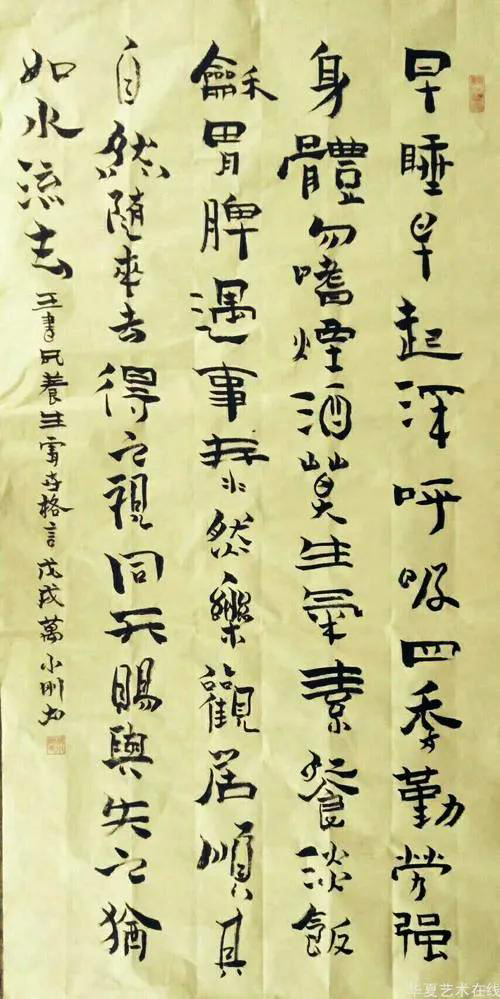 早睡早起深呼吸四季勤劳强
身體勿嗜煙酒莫生氣素餐淡飯
龢胃脾遇事泰然樂觀居順其
自然隨來去得之視同天賜與失之猶
如水流志
王書養生格言戊戌萬小刚书
华夏艺术在线